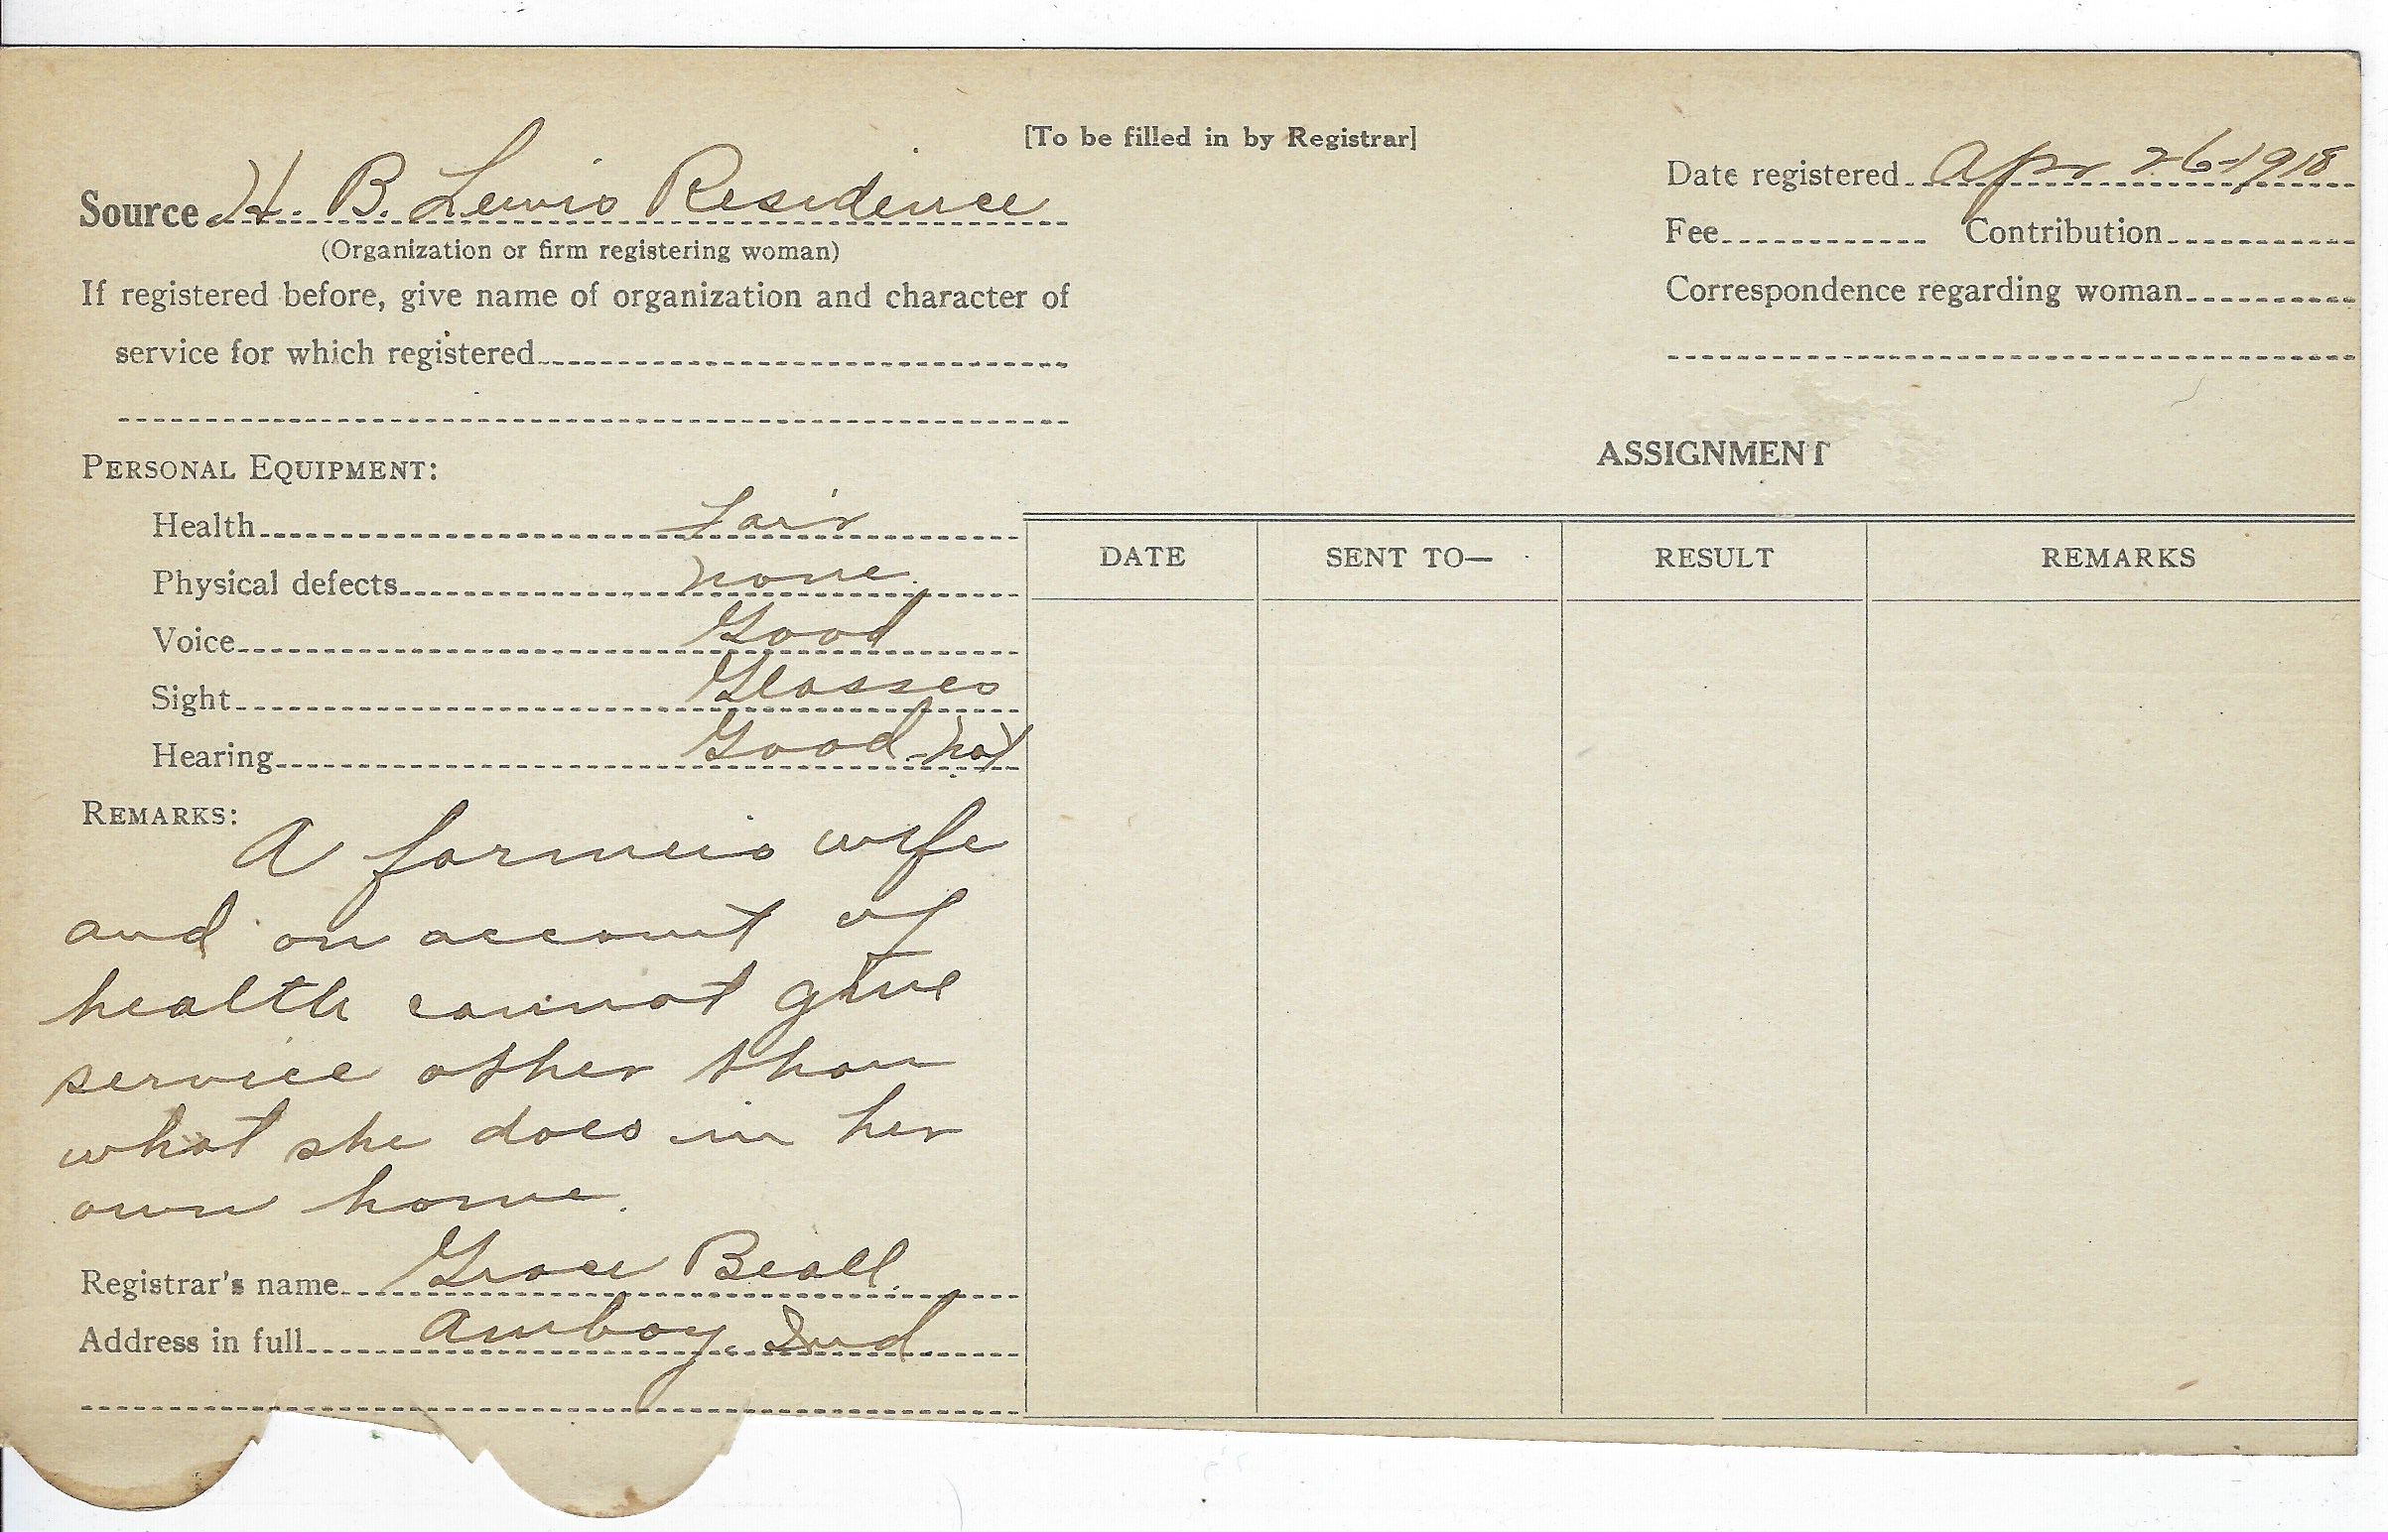 [To be filled in by Registrar]
Source H. B. Lewis Residence
(Organization or firm registering woman)
If registered before, give name of organization and character of
service for which registered
Date registered Apr 26-1918
Fee Contribution
Correspondence regarding woman
PERSONAL EQUIPMENT:
Health fair
Physical defects none.
Voice Good
Sight Glasses
Hearing Good - not
REMARKS:
A farmers wife
and on account of
health cannot give
service other than
what she does in her
own home.
Registrar's name Grace Beall.
Address in full Amboy, Ind.
ASSIGNMENT
DATE SENT TO— RESULT REMARKS